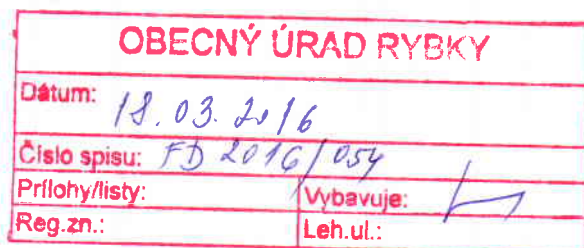 OBECNÝ ÚRAD RYBKY
Dátum: 18.03.2016
Číslo spisu: FD 2016/054
Prílohy/listy: Vybavuje:
Reg.zn.: Leh.ul.: